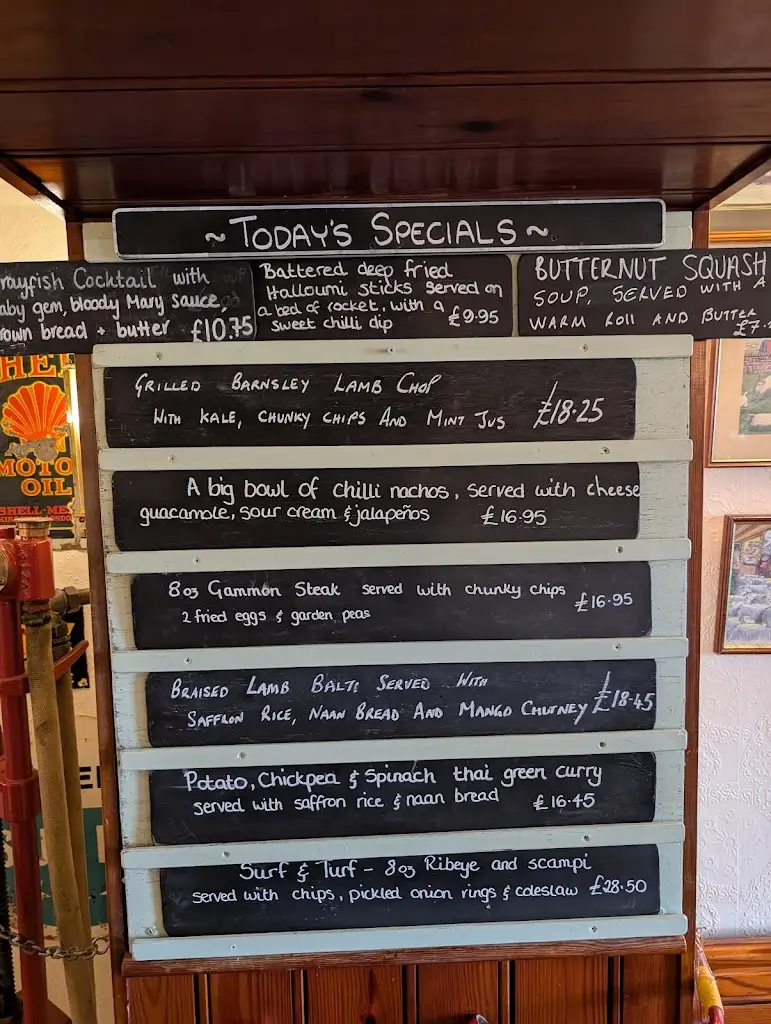 ~ TODAY'S SPECIALS ~
rayfish Cocktail with
aby gem, bloody Mary Sauce,
rown bread + butter £10.75
Battered deep fried
Halloumi sticks served on
a bed of rocket, with a
sweet chilli dip £9.95
BUTTERNUT SQUASH
SOUP, SERVED WITH A
WARM ROLL AND BUTTER
£7.
GRILLED BARNSLEY LAMB CHOP
WITH KALE, CHUNKY CHIPS AND MINT JUS £18.25
A big bowl of chilli nachos, served with cheese
guacamole, sour cream & jalapeños £16.95
8oz Gammon Steak served with chunky chips
2 fried eggs & garden peas £16.95
BRAISED LAMB BALTI SERVED WITH
SAFFRON RICE, NAAN BREAD AND MANGO CHUTNEY £18.45
Potato, Chickpea & Spinach thai green curry
served with saffron rice & naan bread £16.45
Surf & Turf - 8oz Ribeye and scampi
served with chips, pickled onion rings & coleslaw £28.50
HE
MOTO
OIL
SHELL-ME